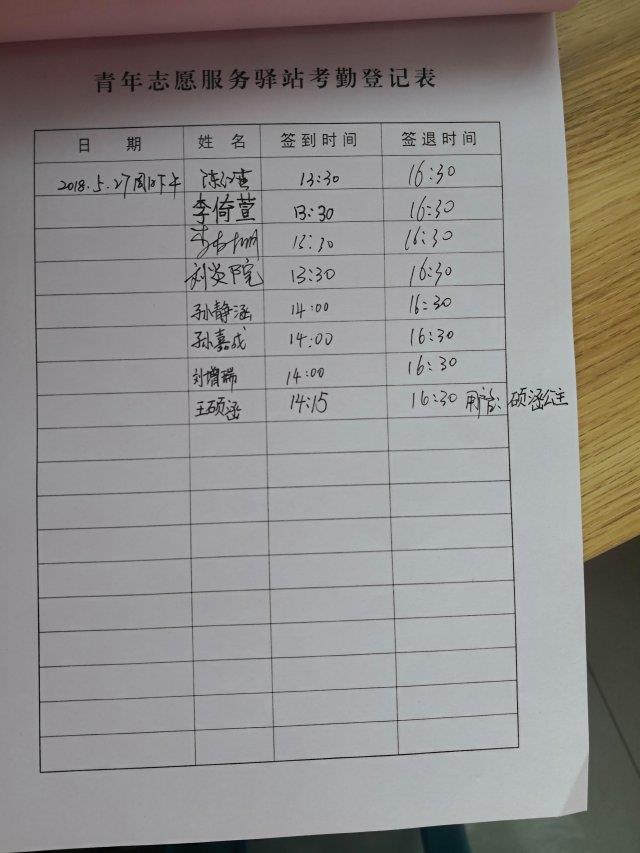 青年志愿服务驿站考勤登记表
日 期 姓 名 签到时间 签退时间
2018.5.27周日下午 13:30 16:30
李倚萱 13:30 16:30
13:30 16:30
刘炎院 13:30 16:30
孙静涵 14:00 16:30
孙嘉成 14:00 16:30
刘增瑞 14:00 16:30
王硕涵 14:15 16:30 用户名:硕涵公主